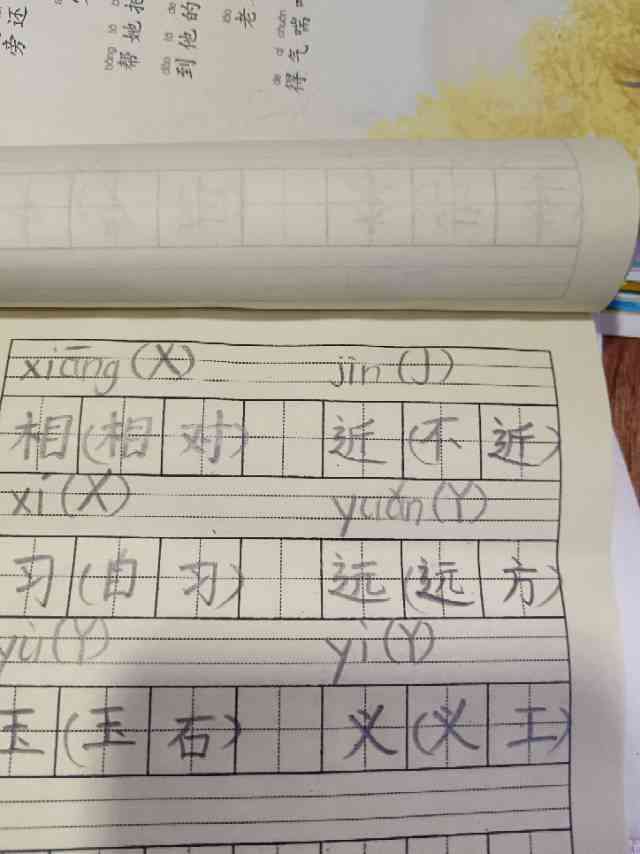 旁还
帮她
bāng tā
到他的
dào tā de
老
lǎo
得气喘
de qì chuǎn
xiāng (X) jìn (J)
相(相对) 近(不近)
xí (X) yuǎn (Y)
习(自习) 远(远方)
yù (Y) yì (Y)
玉(玉石) 义(义工)